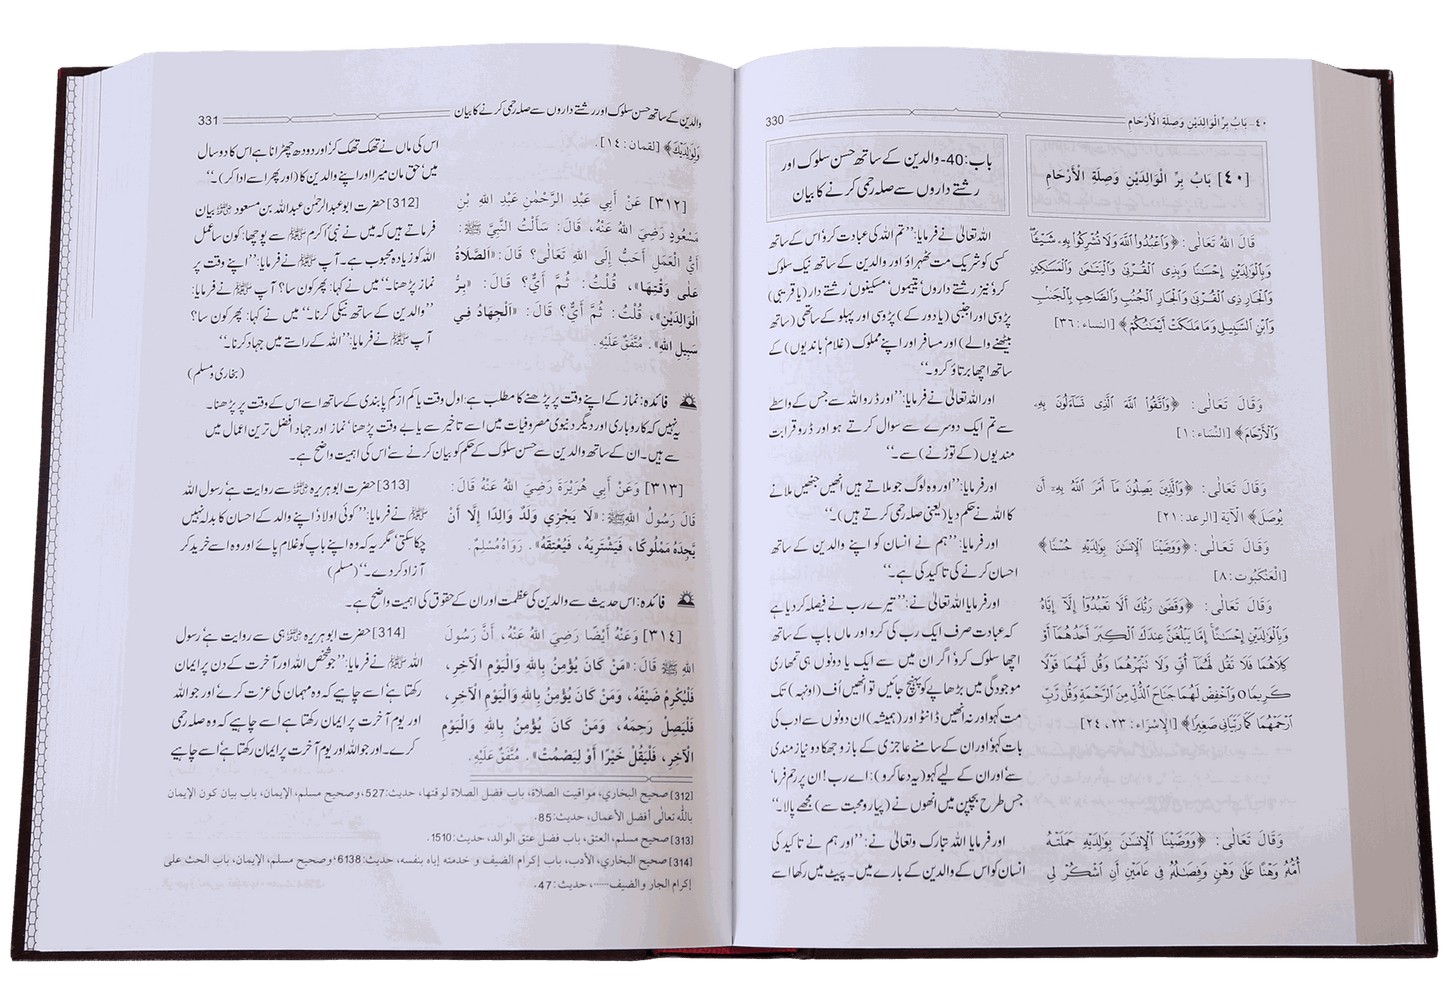 ٤٠- بَابُ بِرِّ الْوَالِدَيْنِ وَصِلَةِ الْأَرْحَامِ
330
[٤٠] بَابُ بِرِّ الْوَالِدَيْنِ وَصِلَةِ الْأَرْحَامِ
باب:40- والدین کے ساتھ حسن سلوک اور
رشتے داروں سے صلہ رحمی کرنے کا بیان
قَالَ اللهُ تَعَالَى: ﴿وَٱعْبُدُوا۟ ٱللَّهَ وَلَا تُشْرِكُوا۟ بِهِۦ شَيْـًٔا ۖ
وَبِٱلْوَٰلِدَيْنِ إِحْسَـٰنًا وَبِذِى ٱلْقُرْبَىٰ وَٱلْيَتَـٰمَىٰ وَٱلْمَسَـٰكِينِ
وَٱلْجَارِ ذِى ٱلْقُرْبَىٰ وَٱلْجَارِ ٱلْجُنُبِ وَٱلصَّاحِبِ بِٱلْجَنۢبِ
وَٱبْنِ ٱلسَّبِيلِ وَمَا مَلَكَتْ أَيْمَـٰنُكُمْ﴾ [النساء:٣٦]
اللہ تعالیٰ نے فرمایا: ’’تم اللہ کی عبادت کرو اس کے ساتھ
کسی کو شریک مت ٹھہراؤ اور والدین کے ساتھ نیک سلوک
کرو نیز رشتے داروں‘ یتیموں‘ مسکینوں‘ رشتے دار (یا قریبی)
پڑوسی اور اجنبی (یا دور کے) پڑوسی اور پہلو کے ساتھی (ساتھ
بیٹھنے والے) اور مسافر اور اپنے مملوک (غلام‘ باندیوں) کے
ساتھ اچھا برتاؤ کرو۔‘‘
وَقَالَ تَعَالَى: ﴿وَٱتَّقُوا۟ ٱللَّهَ ٱلَّذِى تَسَآءَلُونَ بِهِۦ
وَٱلْأَرْحَامَ﴾ [النِّسَاء:١]
اور اللہ تعالیٰ نے فرمایا: ’’اور ڈرو اللہ سے جس کے واسطے
سے تم ایک دوسرے سے سوال کرتے ہو اور ڈرو قرابت
مندیوں (کے توڑنے) سے۔‘‘
وَقَالَ تَعَالَى: ﴿وَٱلَّذِينَ يَصِلُونَ مَآ أَمَرَ ٱللَّهُ بِهِۦٓ أَن
يُوصَلَ﴾ الْآيَة [الرعد:٢١]
اور فرمایا: ’’اور وہ لوگ جو ملاتے ہیں انھیں جنھیں ملانے
کا اللہ نے حکم دیا (یعنی صلہ رحمی کرتے ہیں)۔‘‘
وَقَالَ تَعَالَى: ﴿وَوَصَّيْنَا ٱلْإِنسَـٰنَ بِوَٰلِدَيْهِ حُسْنًا﴾
[الْعَنْكَبُوت:٨]
اور فرمایا: ’’ہم نے انسان کو اپنے والدین کے ساتھ
احسان کرنے کی تاکید کی ہے۔‘‘
وَقَالَ تَعَالَى: ﴿وَقَضَىٰ رَبُّكَ أَلَّا تَعْبُدُوٓا۟ إِلَّآ إِيَّاهُ
وَبِٱلْوَٰلِدَيْنِ إِحْسَـٰنًا ۚ إِمَّا يَبْلُغَنَّ عِندَكَ ٱلْكِبَرَ أَحَدُهُمَآ أَوْ
كِلَاهُمَا فَلَا تَقُل لَّهُمَآ أُفٍّ وَلَا تَنْهَرْهُمَا وَقُل لَّهُمَا قَوْلًا
كَرِيمًا ٥ وَٱخْفِضْ لَهُمَا جَنَاحَ ٱلذُّلِّ مِنَ ٱلرَّحْمَةِ وَقُل رَّبِّ
ٱرْحَمْهُمَا كَمَا رَبَّيَانِى صَغِيرًا﴾ [الْإِسْرَاء:٢٣، ٢٤]
اور فرمایا اللہ تعالیٰ نے: ’’تیرے رب نے فیصلہ کر دیا ہے
کہ عبادت صرف ایک رب کی کرو اور ماں باپ کے ساتھ
اچھا سلوک کرو‘ اگر ان میں سے ایک یا دونوں ہی تمھاری
موجودگی میں بڑھاپے کو پہنچ جائیں تو انھیں اُف (اونہہ) تک
مت کہو اور نہ انھیں ڈانٹو اور (ہمیشہ) ان دونوں سے ادب کی
بات کہو‘ اور ان کے سامنے عاجزی کے بازو جھکا دو نیازمندی
سے‘ اور ان کے لیے کہو (یہ دعا کرو): اے رب! ان پر رحم فرما‘
جس طرح بچپن میں انھوں نے (پیار و محبت سے) مجھے پالا۔‘‘
وَقَالَ تَعَالَى: ﴿وَوَصَّيْنَا ٱلْإِنسَـٰنَ بِوَٰلِدَيْهِ حَمَلَتْهُ
أُمُّهُۥ وَهْنًا عَلَىٰ وَهْنٍ وَفِصَـٰلُهُۥ فِى عَامَيْنِ أَنِ ٱشْكُرْ لِى
اور فرمایا اللہ تبارک وتعالیٰ نے: ’’اور ہم نے تاکید کی
انسان کو اس کے والدین کے بارے میں۔ پیٹ میں رکھا اسے
والدین کے ساتھ حسن سلوک اور رشتے داروں سے صلہ رحمی کرنے کا بیان
331
وَلِوَٰلِدَيْكَ﴾ [لقمان:١٤].
اس کی ماں نے تھک تھک کر‘ اور دودھ چھڑانا ہے اس کا دو سال
میں‘ حق مان میرا اور اپنے والدین کا (اور پھر اسے ادا کر)۔‘‘
[٣١٢] عَنْ أَبِي عَبْدِ الرَّحْمٰنِ عَبْدِ اللهِ بْنِ
مَسْعُودٍ رَضِيَ اللهُ عَنْهُ، قَالَ: سَأَلْتُ النَّبِيَّ ﷺ:
أَيُّ الْعَمَلِ أَحَبُّ إِلَى اللهِ تَعَالَى؟ قَالَ: «الصَّلَاةُ
عَلَى وَقْتِهَا»، قُلْتُ: ثُمَّ أَيٌّ؟ قَالَ: «بِرُّ
الْوَالِدَيْنِ»، قُلْتُ: ثُمَّ أَيٌّ؟ قَالَ: «الْجِهَادُ فِي
سَبِيلِ اللهِ». مُتَّفَقٌ عَلَيْهِ.
[312] حضرت ابوعبدالرحمٰن عبداللہ بن مسعود ﷜ بیان
فرماتے ہیں کہ میں نے نبی اکرم ﷺ سے پوچھا: کون سا عمل
اللہ کو زیادہ محبوب ہے۔ آپ ﷺ نے فرمایا: ’’اپنے وقت پر
نماز پڑھنا۔‘‘ میں نے کہا: پھر کون سا؟ آپ ﷺ نے فرمایا:
’’والدین کے ساتھ نیکی کرنا۔‘‘ میں نے کہا: پھر کون سا؟
آپ ﷺ نے فرمایا: ’’اللہ کے راستے میں جہاد کرنا۔‘‘
(بخاری و مسلم)
فائدہ: نماز کے اپنے وقت پر پڑھنے کا مطلب ہے: اول وقت یا کم از کم پابندی کے ساتھ اسے اس کے وقت پر پڑھنا۔
یہ نہیں کہ کاروباری اور دیگر دنیوی مصروفیات میں اسے تاخیر سے یا بے وقت پڑھنا‘ نماز اور جہاد افضل ترین اعمال میں
سے ہیں۔ ان کے ساتھ والدین سے حسن سلوک کے حکم کو بیان کرنے سے‘ اس کی اہمیت واضح ہے۔
[٣١٣] وَعَنْ أَبِي هُرَيْرَةَ رَضِيَ اللهُ عَنْهُ قَالَ:
قَالَ رَسُولُ اللهِ ﷺ: «لَا يَجْزِي وَلَدٌ وَالِدًا إِلَّا أَنْ
يَّجِدَهُ مَمْلُوكًا، فَيَشْتَرِيَهُ، فَيُعْتِقَهُ». رَوَاهُ مُسْلِمٌ.
[313] حضرت ابوہریرہ ﷜ سے روایت ہے‘ رسول اللہ
ﷺ نے فرمایا: ’’کوئی اولاد اپنے والد کے احسان کا بدلہ نہیں
چکا سکتی‘ مگر یہ کہ وہ اپنے باپ کو غلام پائے اور وہ اسے خرید کر
آزاد کر دے۔‘‘ (مسلم)
فائدہ: اس حدیث سے والدین کی عظمت اور ان کے حقوق کی اہمیت واضح ہے۔
[٣١٤] وَعَنْهُ أَيْضًا رَضِيَ اللهُ عَنْهُ، أَنَّ رَسُولَ
اللهِ ﷺ قَالَ: «مَنْ كَانَ يُؤْمِنُ بِاللهِ وَالْيَوْمِ الْآخِرِ،
فَلْيُكْرِمْ ضَيْفَهُ، وَمَنْ كَانَ يُؤْمِنُ بِاللهِ وَالْيَوْمِ الْآخِرِ،
فَلْيَصِلْ رَحِمَهُ، وَمَنْ كَانَ يُؤْمِنُ بِاللهِ وَالْيَوْمِ
الْآخِرِ، فَلْيَقُلْ خَيْرًا أَوْ لِيَصْمُتْ». مُتَّفَقٌ عَلَيْهِ.
[314] حضرت ابوہریرہ ﷜ ہی سے روایت ہے‘ رسول
اللہ ﷺ نے فرمایا: ’’جو شخص اللہ اور آخرت کے دن پر ایمان
رکھتا ہے‘ اسے چاہیے کہ وہ مہمان کی عزت کرے اور جو اللہ
اور یوم آخرت پر ایمان رکھتا ہے اسے چاہیے کہ وہ صلہ رحمی
کرے۔ اور جو اللہ اور یوم آخرت پر ایمان رکھتا ہے‘ اسے چاہیے
[312] صحيح البخاري، مواقيت الصلاة، باب فضل الصلاة لوقتها، حديث:527، وصحيح مسلم، الإيمان، باب بيان كون الإيمان
بالله تعالى أفضل الأعمال، حديث:85.
[313] صحيح مسلم، العتق، باب فضل عتق الوالد، حديث:1510.
[314] صحيح البخاري، الأدب، باب إكرام الضيف و خدمته إياه بنفسه، حديث:6138، وصحيح مسلم، الإيمان، باب الحث على
إكرام الجار والضيف......، حديث:47.